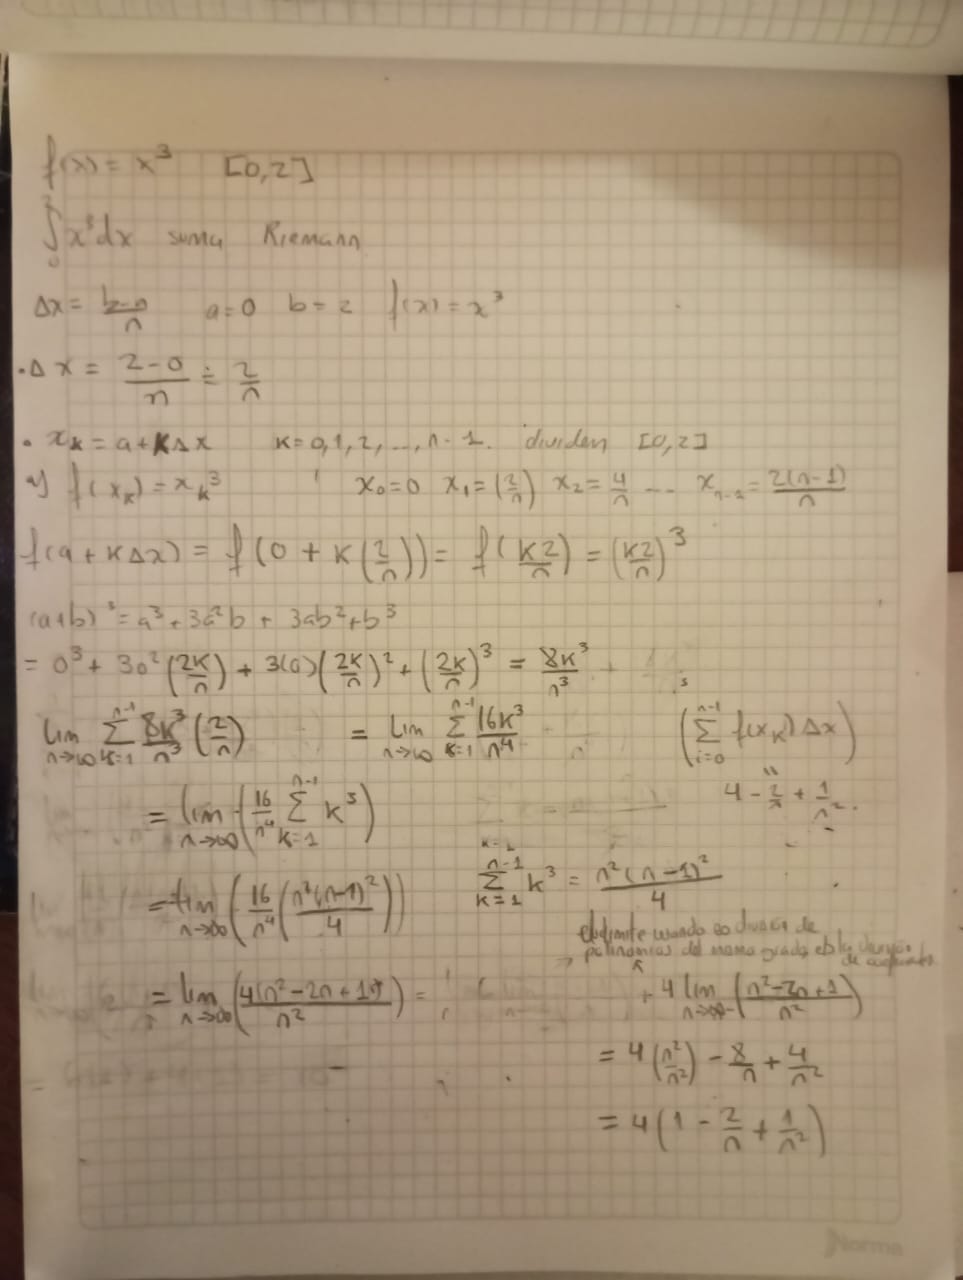 f(x) = x³ [0,2]
∫₀² x³dx suma Riemann
Δx = b-a/n a=0 b=2 f(x) = x³
• Δx = 2-0/n = 2/n
• xₖ = a+kΔx k=0,1,2,...,n-1. dividen [0,2]
y f(xₖ) = xₖ³ x₀=0 x₁=(2/n) x₂=4/n ... xₙ₋₁=2(n-1)/n
f(a+kΔx) = f(0+k(2/n)) = f(k2/n) = (k2/n)³
(a+b)³ = a³+3a²b + 3ab²+b³
= 0³ + 30²(2k/n) + 3(0)(2k/n)² + (2k/n)³ = 8k³/n³
lim n→∞ Σ k=1 n-1 8k³/n³ (2/n) = lim n→∞ Σ k=1 n-1 16k³/n⁴ (Σ i=0 n-1 f(xₖ)Δx)
= lim n→∞ (16/n⁴ Σ k=1 n-1 k³) 4 - 2/n + 1/n².
= lim n→∞ (16/n⁴ (n²(n-1)²/4)) Σ k=1 n-1 k³ = n²(n-1)²/4
limite cuando es división de
polinomios del mismo grado es la
= lim n→∞ (4(n²-2n+1)/n²) = 4 lim n→∞ (n²-2n+1/n²)
= 4(n²/n²) - 8/n + 4/n²
= 4(1 - 2/n + 1/n²)
Norma